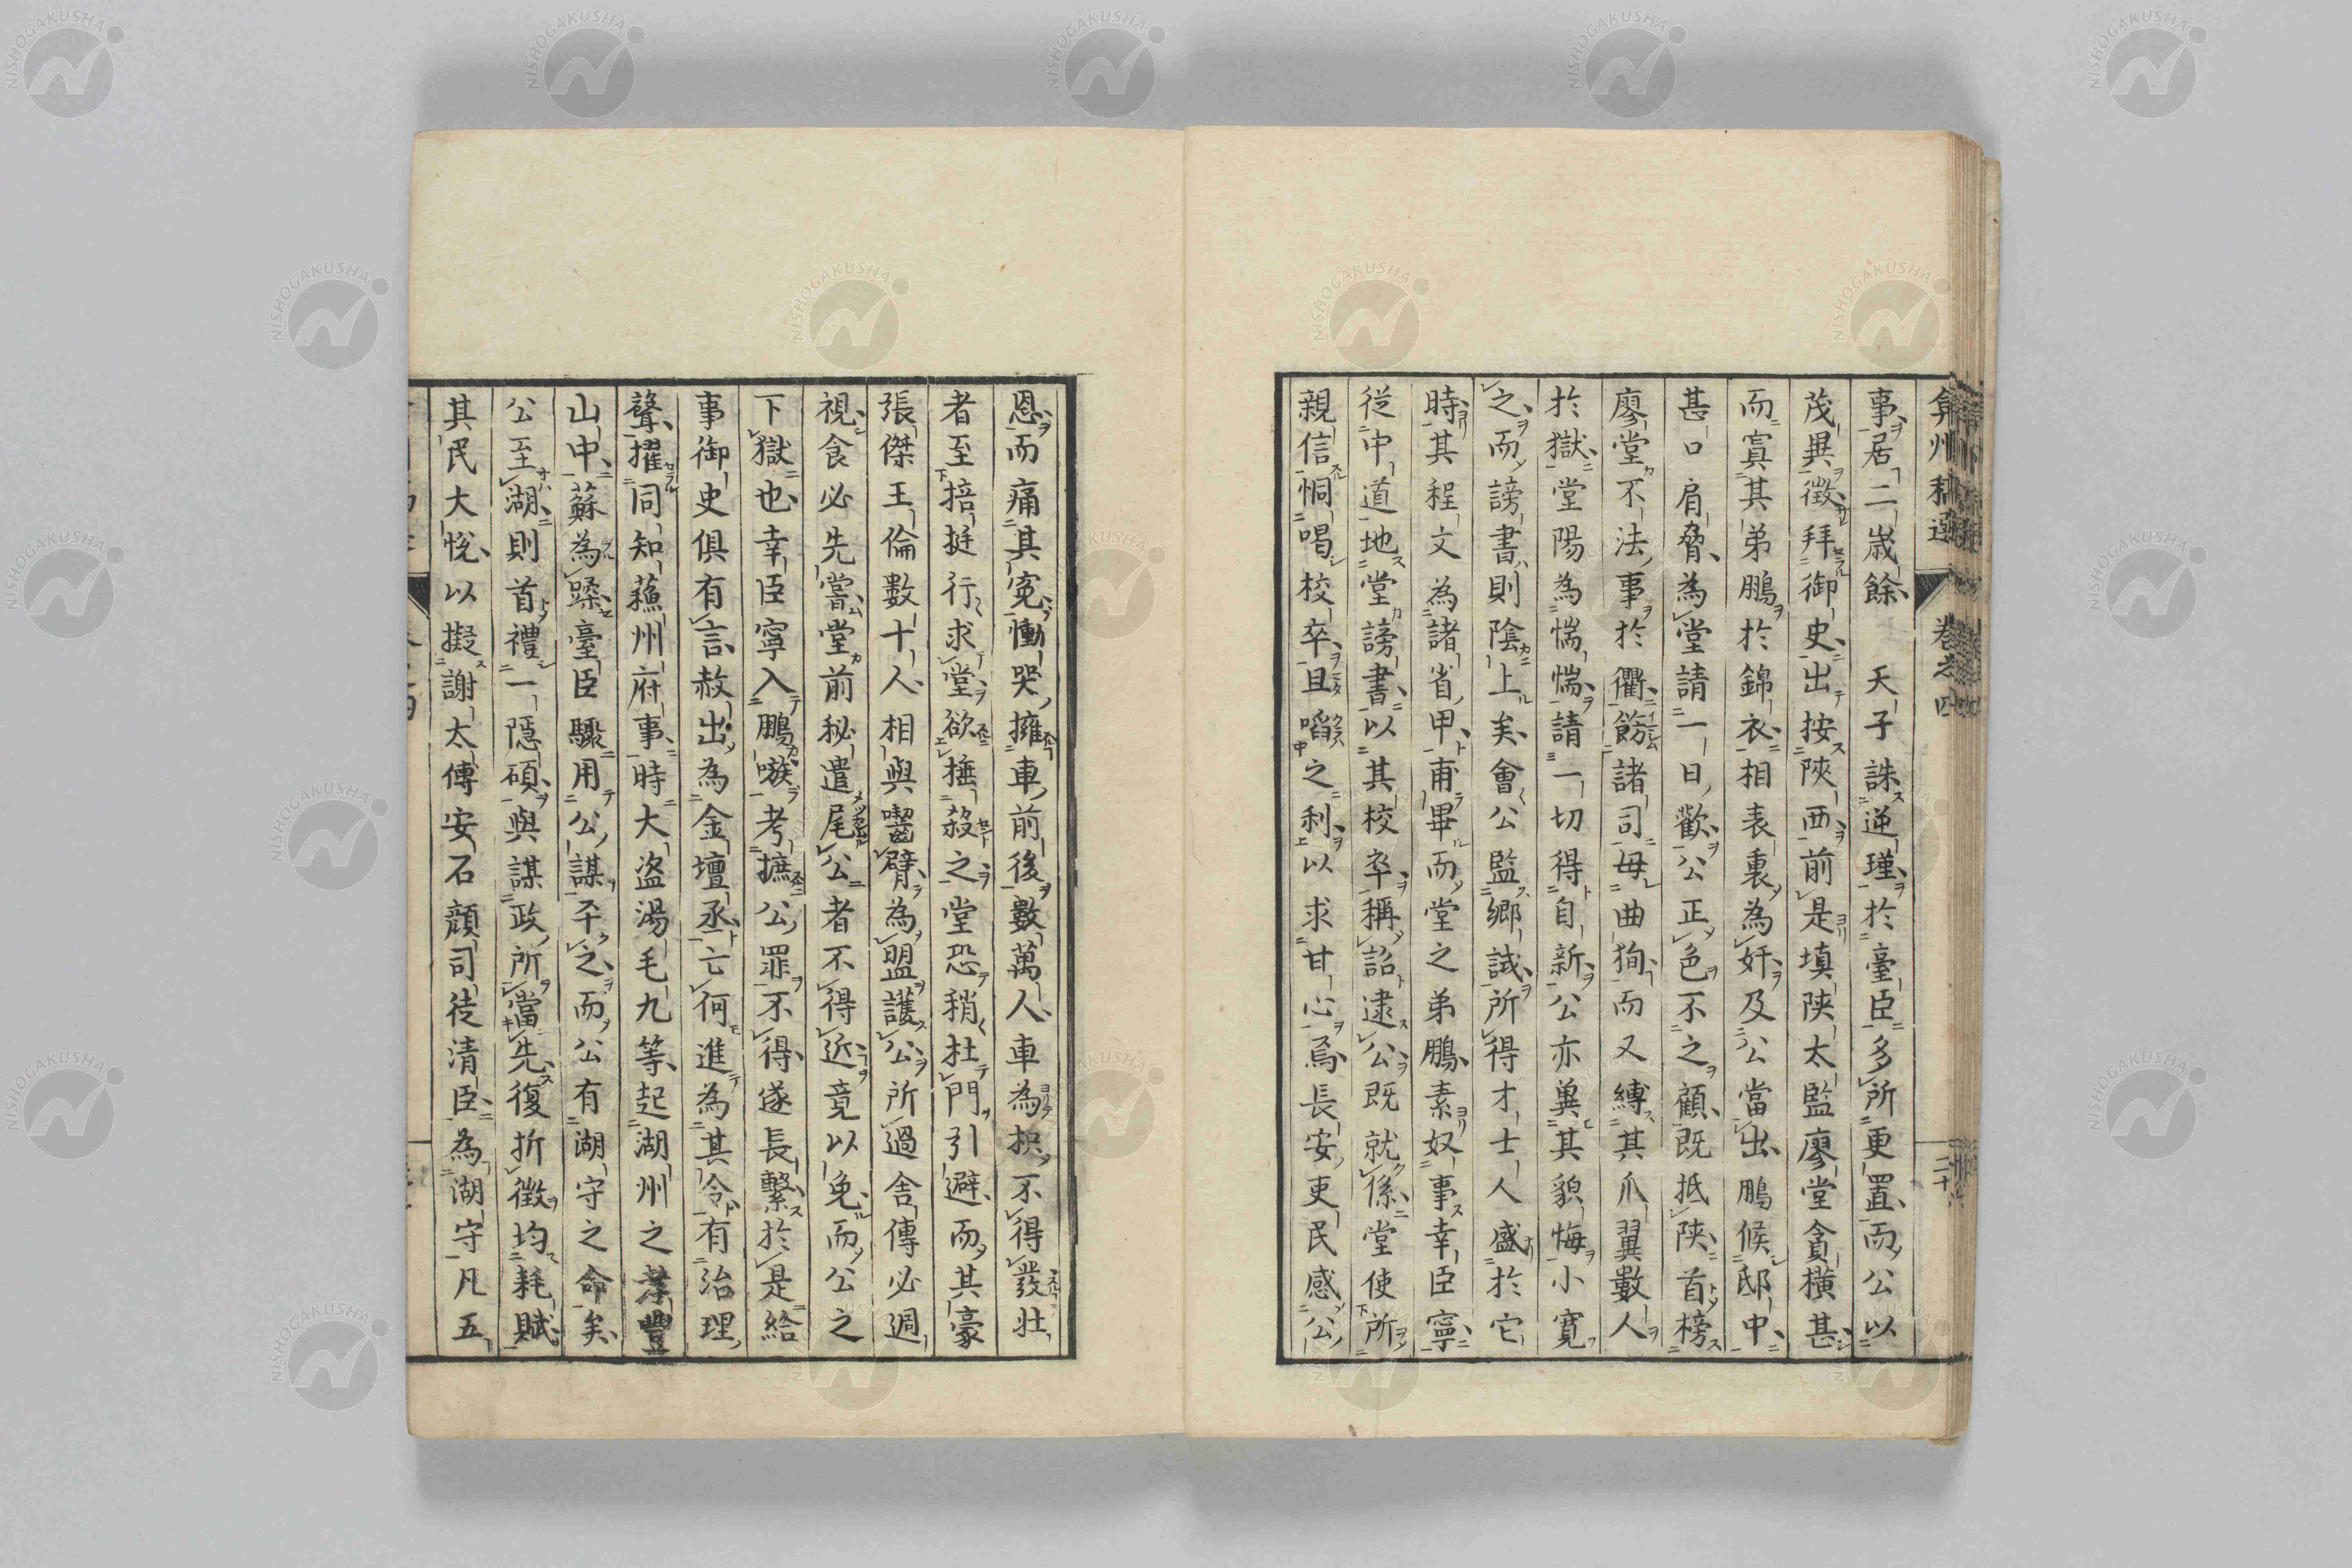 弇州稿選　卷之四　二十
事居二歲餘　天子誅逆瑾於臺臣多所更置而公以
茂異徵拜御史出按陝西前是填陝太監廖堂貪橫甚
而寘其弟鵬於錦衣相表裏為奸及公當出鵬候邸中
甚口肩脅為堂請一日歡公正色不之顧既抵陝首榜
廖堂不法事於衢飭諸司毋曲狥而又縛其爪翼數人
於獄堂陽為惴惴請一切得自新公亦冀其貌悔小寬
之而謗書則陰上矣會公監鄉試所得才士人盛於它
時其程文為諸省甲甫畢而堂之弟鵬素奴事幸臣寧
從中道地堂謗書以其校卒稱詔逮公既就係堂使所
親信恫喝校卒且啗之利以求甘心焉長安吏民感公
恩而痛其寃慟哭擁車前後數萬人車為枳不得發壯
者至掊挺行求堂欲捶殺之堂恐稍杜門引避而其豪
張傑王倫數十人相與嚙臂為盟護公所過舍傳必週
視食必先嘗堂前秘遣尾公者不得近竟以免而公之
下獄也幸臣寧入鵬嗾考摭公罪不得遂長繫於是給
事御史俱有言赦出為金壇丞亡何進為其令有治理
聲擢同知蘓州府事時大盜湯毛九等起湖州之孝豐
山中蘇為蹂臺臣驟用公謀平之而公有湖守之命矣
公至湖則首禮一隱碩與謀政所當先復折徵均耗賦
其民大悅以擬謝太傅安石顔司徒清臣為湖守凡五